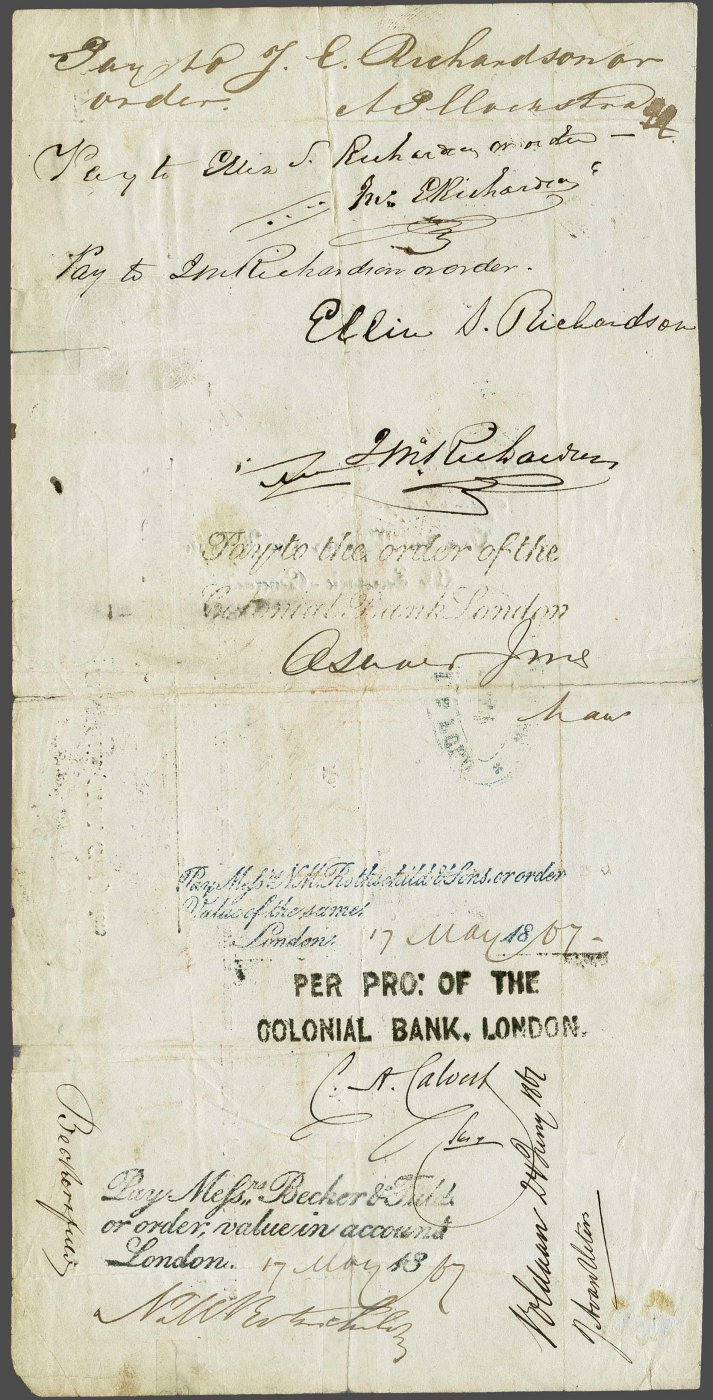 Pay to J. E. Richardson or
order.
Pay to Ellin S. Richardson or order —
Jno ERichardson
Pay to JmRichardson or order.
Ellin S. Richardson
JmRichardson
Pay to the order of the
Colonial Bank London
Pay Messrs N.M. Rothschild & Sons, or order
Value of the same,
London, 17 May 1867
PER PRO: OF THE
COLONIAL BANK, LONDON.
C. A. Calvert
Pay Messrs Becker & Fuld
or order, value in account
London. 17 May 1867
NMRothschild
Becker & Fuld
Voldaan 24 Juny 1867